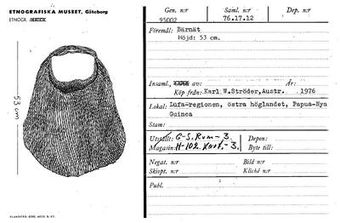 ETNOGRAFISKA MUSEET, Göteborg
53 cm
Gen. n:r
Saml. n:r
Dep. n:r
95002
76.17.12
Föremål: Bärnät
Höjd: 53 cm.
Insaml. av:
År:
Köp från: Karl W.Ströder, Austr. 1976
Lokal: Lufa-regionen, östra höglandet, Papua-Nya
Guinea
Stam:
Utställt: G-S. Rum - 3.
Depon:
Magasin: H-102 Kart. - 3.
Bytt till:
Negat. n:r
Bild n:r
Skiopt. n:r
Kliché n:r
Publ.